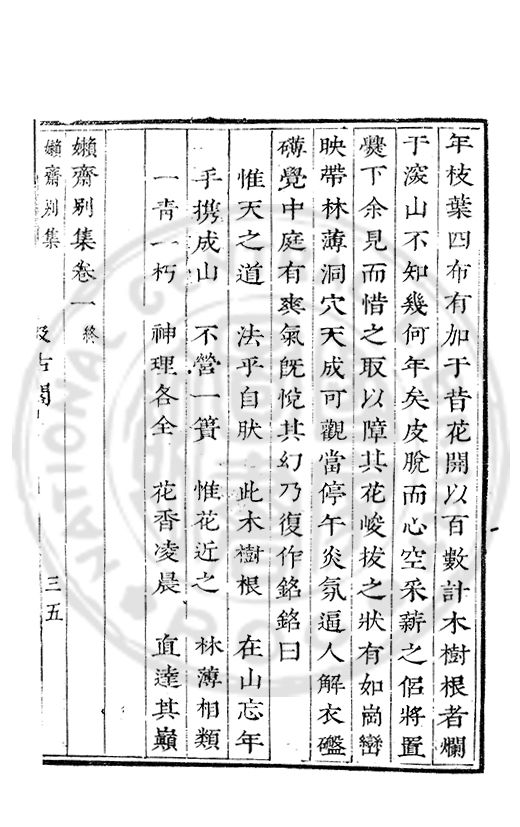 年枝葉四布有加于昔花開以百數計木樹根者爛
于深山不知幾何年矣皮脫而心空采薪之侶將置
爨下余見而惜之取以障其花峻拔之狀有如崗巒
映帶林薄洞穴天成可觀當停午炎氛逼人解衣礛
礡覺中庭有爽氣旣悅其幻乃復作銘銘曰
惟天之道 法乎自肰 此木樹根 在山忘年
手攜成山 不營一簣 惟花近之 林薄相類
一青一朽 神理各全 花香凌晨 直達其巔
嬾齋別集卷一 終
嬾齋別集 汲古閣 三五
NATIONAL CENTRAL